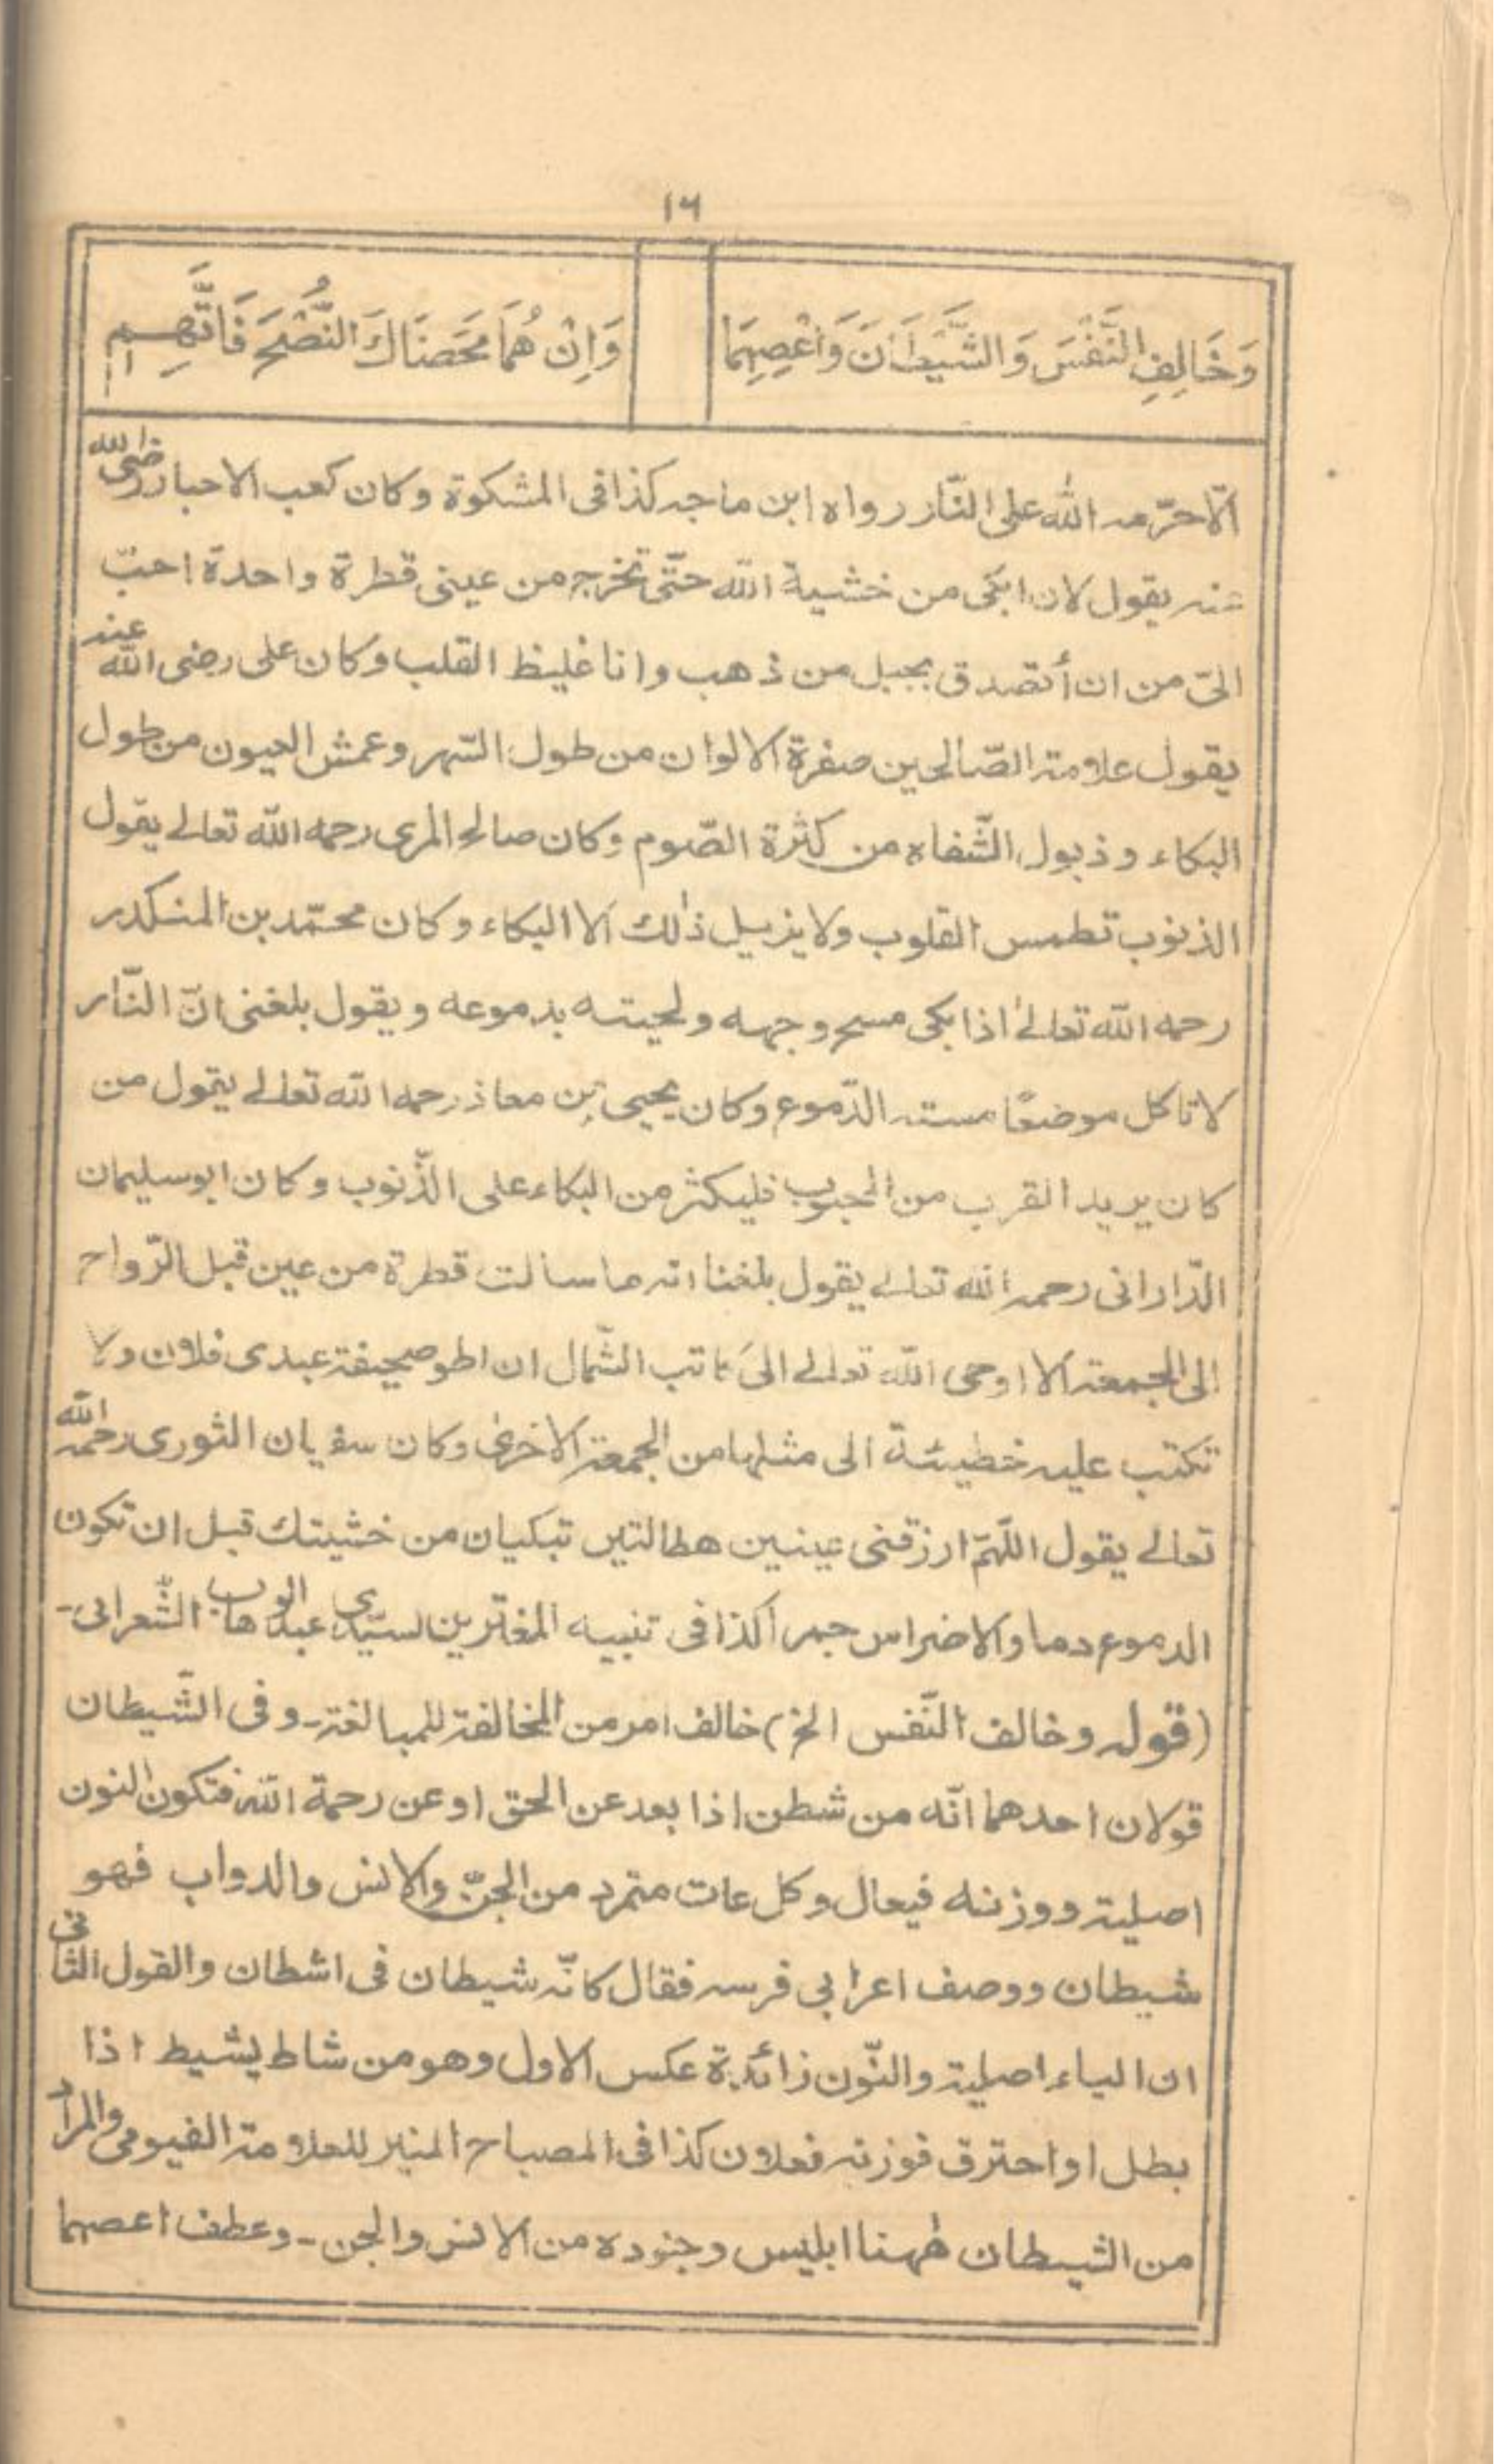 ١٦
وَخَالِفِ النَّفْسَ وَالشَّيْطَانَ وَاعْصِهِمَا
وَاِنْ هُمَا مَحَضَاكَ النُّصْحَ فَاتَّهِمِ
الّا حرّمه الله على النّار رواه ابن ماجه كذا فى المشكوة وكان كعب الاحبار رضى الله
عنه يقول لان ابكى من خشية الله حتّى تخرج من عينى قطرة واحدة احبّ
الىّ من ان أتصدق بجبل من ذهب وانا غليظ القلب وكان على رضى الله عنه
يقول علامة الصّالحين صفرة الالوان من طول السّهر وعمش العيون من طول
البكاء وذبول الشّفاه من كثرة الصّوم وكان صالح المرى رحمه الله تعالے يقول
الذنوب تطمس القلوب ولا يزيل ذٰلك الا البكاء وكان محمّد بن المنكدر
رحمه الله تعالےٰ اذا بكى مسح وجهه ولحيته بدموعه ويقول بلغنى انّ النّار
لا تاكل موضعًا مسته الدّموع وكان يحيى بن معاذ رحمه الله تعالے يقول من
كان يريد القرب من المحبوب فليكثر من البكاء على الذّنوب وكان ابو سليمان
الدّارانى رحمه الله تعالے يقول بلغنا انه ما سالت قطرة من عين قبل الرّواح
الى الجمعة الا اوحى الله تعالے الىٰ كاتب الشّمال ان اطو صحيفة عبدى فلان ولا
تكتب عليه خطيئة الى مثلها من الجمعة الاخرىٰ وكان سفيان الثورى رحمه الله
تعالے يقول اللّهمّ ارزقنى عينين هطالتين تبكيان من خشيتك قبل ان تكون
الدموع دما والاضراس جمرا كذا فى تنبيه المغترين لسيّدى عبد الوهاب الشّعرانى-
(قوله وخالف النّفس الخ) خالف امر من المخالفة للمبالغة- وفى الشّيطان
قولان احدهما انّه من شطن اذا بعد عن الحق او عن رحمة الله فتكون النون
اصلية ووزنه فيعال وكل عات متمرد من الجنّ والانس والدواب فهو
شيطان ووصف اعرابى فرسه فقال كانّه شيطان فى اشطان والقول الثانى
ان الياء اصلية والنّون زائدة عكس الاول وهو من شاط يشيط اذا
بطل او احترق فوزنه فعلان كذا فى المصباح المنير للعلامة الفيومى والمراد
من الشيطان هٰهنا ابليس وجنوده من الانس والجن- وعطف اعصهما